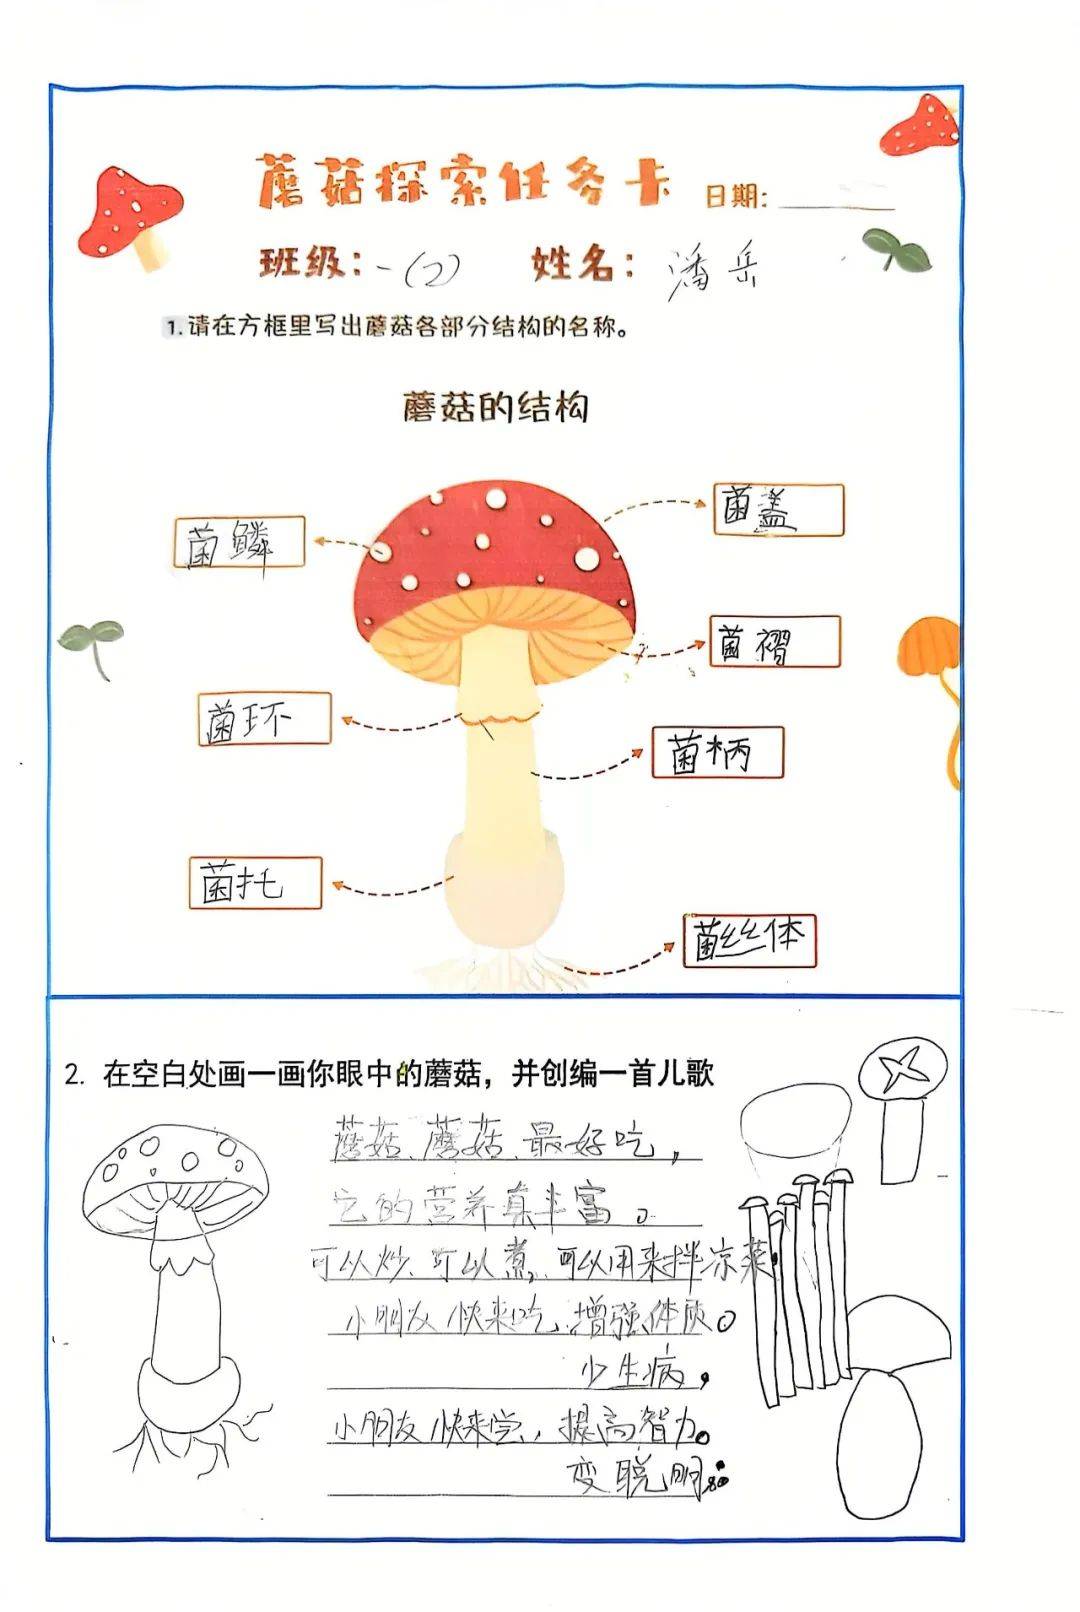 蘑菇探索任务卡 日期:
班级: 一(2) 姓名: 潘岳
1.请在方框里写出蘑菇各部分结构的名称。
蘑菇的结构
菌鳞
菌盖
菌褶
菌环
菌柄
菌托
菌丝体
2. 在空白处画一画你眼中的蘑菇，并创编一首儿歌
蘑菇、蘑菇、最好吃，
它的营养真丰富。
可以炒、可以煮，可以用来拌凉菜，
小朋友快来吃，增强体质。
少生病，
小朋友快来尝，提高智力。
变聪明。